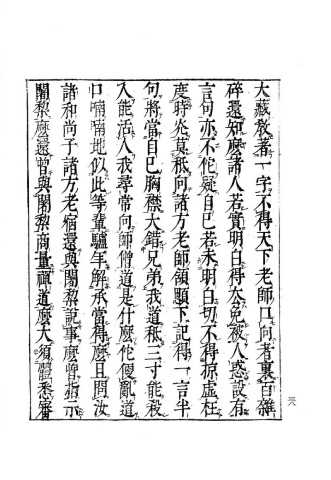 大藏敎著一字不得天下老師口向者裏百雜
碎還知麽諸人若實明白得去免被人惑設有
言句亦不佗疑自己若未明白切不得掠虛枉
度時光莫秖向諸方老師頷頤下記得一言半
句將當自己胸襟大錯兄弟我道秖三寸能殺
人能活人我尋常向師僧道是什麽佗便亂道
口喃喃地似此等輩驢年解承當得麽且問汝
諸和尚子諸方老宿還與闍黎說事麽曾指示
闍黎麽還曾與闍黎商量禪道麽大須體悉審